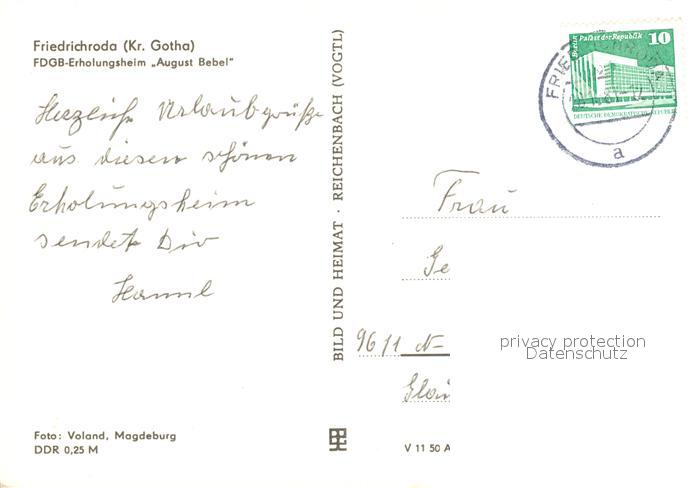 Friedrichroda (Kr. Gotha)
FDGB-Erholungsheim „August Bebel"
Herzliche Urlaubsgrüße
aus diesem schönen
Erholungsheim
sendet Dir
BILD UND HEIMAT · REICHENBACH (VOGTL)
Berlin Palast der Republik
10
DEUTSCHE DEMOKRATISCHE REPUBLIK
a
Frau
Ge
9611 N-
Glau
privacy protection
Datenschutz
Foto: Voland, Magdeburg
DDR 0,25 M
V 11 50 A